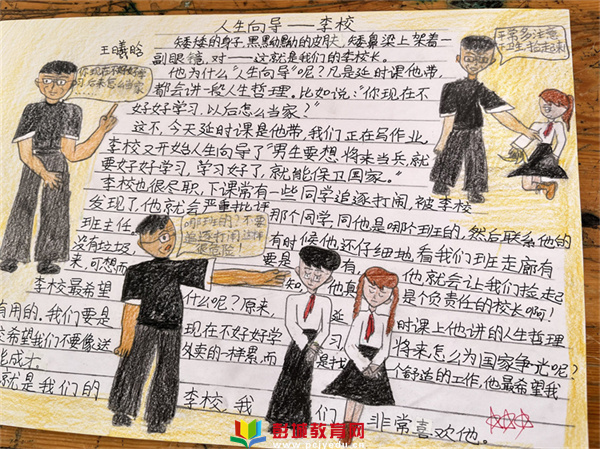 人生向导——李校
王曦晗
矮矮的身子,黑黝黝的皮肤,矮鼻梁上架着一
副眼镜,对——这就是我们的李校长。
他为什么"人生向导"呢?凡是延时课他带,
都会讲一些人生哲理。比如说:"你现在不
好好学习,以后怎么当家?"
这不,今天延时课是他带,我们正在写作业,
李校又开始人生向导了"男生要想将来当兵,就
要好好学习,学习好了,就能保卫国家。"
李校也很尽职,下课常有一些同学追逐打闹,被李校
发现了,他就会严重批评那个同学,问他是哪个班的,然后联系他的
班主任。有时候他还仔细地看我们班走廊有
没有垃圾,要是有,他就会让我们捡起
来,可想而知,他真是个负责任的校长啊!
李校最希望什么呢?原来,延时课上他讲的人生哲理
有用的。我们要是现在不好好学习将来怎么为国家争光呢?
希望我们不要像送外卖的一样累,而是找个舒适的工作,他最希望我
能成才。
就是我们的李校,我们非常喜欢他。
你现在不好好学习后来怎么当家
平常多注意卫生,捡起来
哪班的?不要追逐打闹这样很危险!
彭城教育网
www.pcjyedu.cn